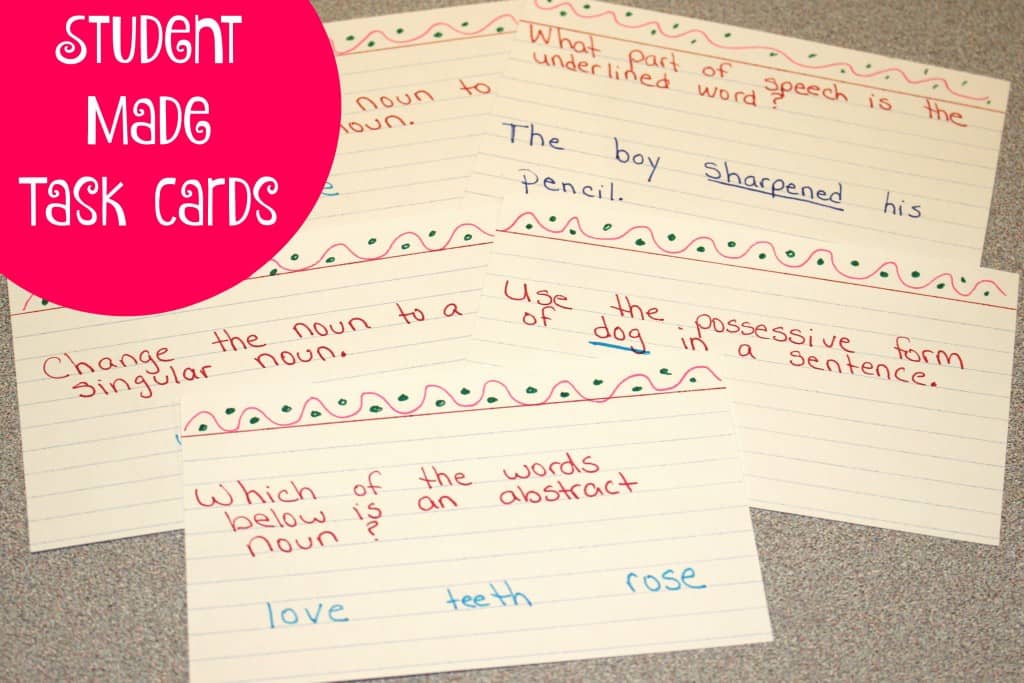 STUDENT
MADE
TASK CARDS
noun to
noun.
What part of speech is the
underlined word?
The boy sharpened his
pencil.
Change the noun to a
singular noun.
Use the possessive form
of dog in a sentence.
Which of the words
below is an abstract
noun?
love teeth rose